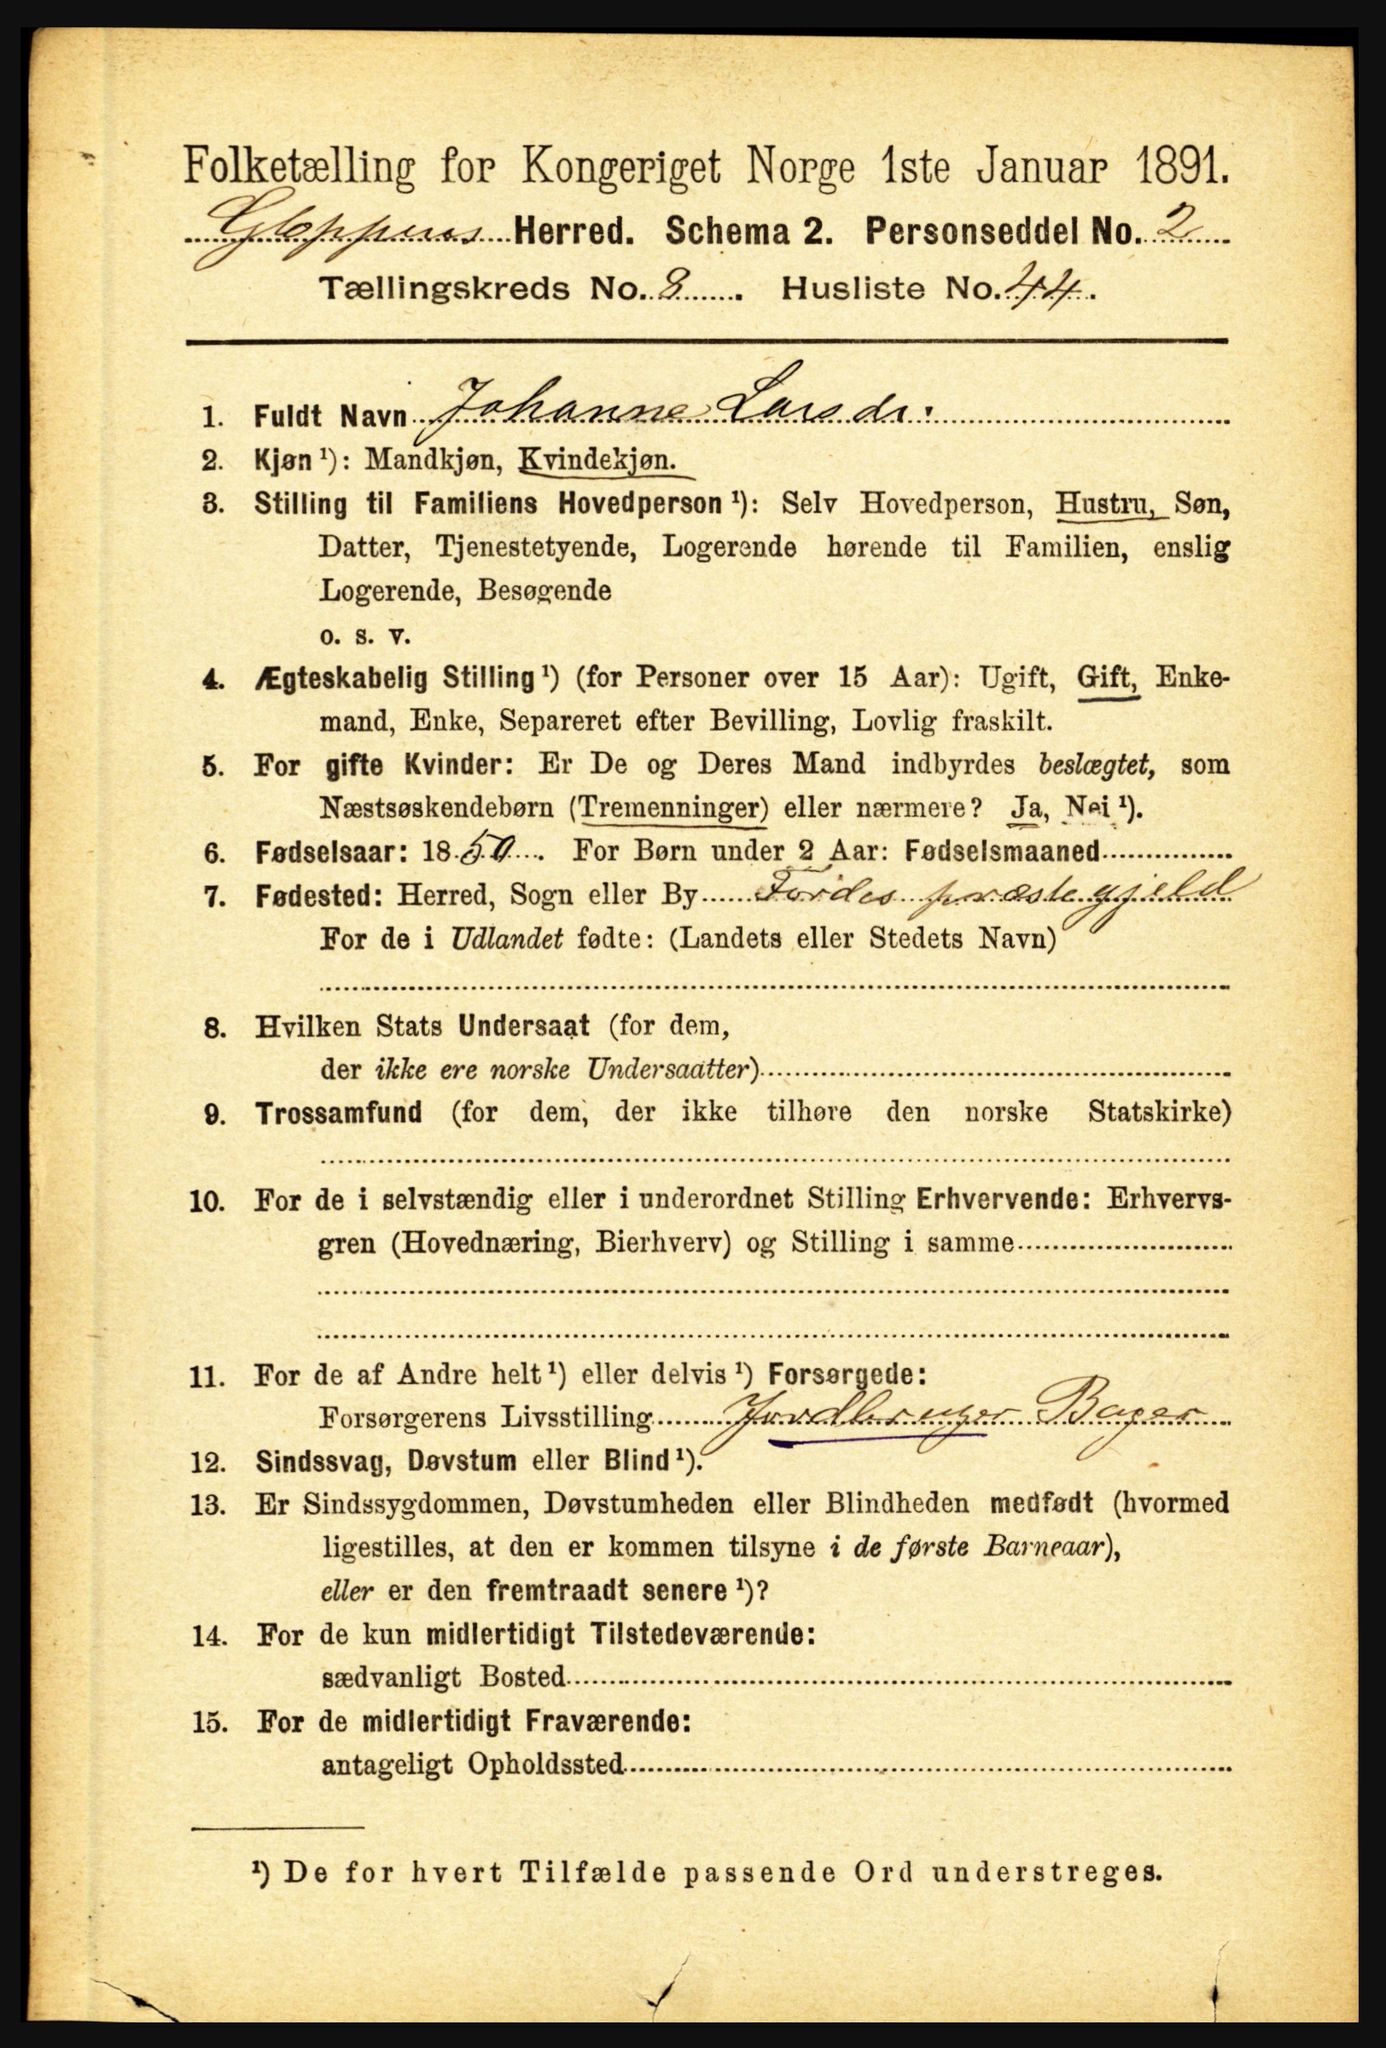 Folketælling for Kongeriget Norge 1ste Januar 1891.
Gloppens Herred. Schema 2. Personseddel No. 2
Tællingskreds No. 8. Husliste No. 44.
1. Fuldt Navn Johanne Larsdr.
2. Kjøn ¹): Mandkjøn, Kvindekjøn.
3. Stilling til Familiens Hovedperson ¹): Selv Hovedperson, Hustru, Søn,
Datter, Tjenestetyende, Logerende hørende til Familien, enslig
Logerende, Besøgende
o. s. v.
4. Ægteskabelig Stilling ¹) (for Personer over 15 Aar): Ugift, Gift, Enke-
mand, Enke, Separeret efter Bevilling, Lovlig fraskilt.
5. For gifte Kvinder: Er De og Deres Mand indbyrdes beslægtet, som
Næstsøskendebørn (Tremenninger) eller nærmere? Ja, Nei ¹).
6. Fødselsaar: 1850. For Børn under 2 Aar: Fødselsmaaned
7. Fødested: Herred, Sogn eller By Førdes præstegjeld
For de i Udlandet fødte: (Landets eller Stedets Navn)
8. Hvilken Stats Undersaat (for dem,
der ikke ere norske Undersaatter)
9. Trossamfund (for dem, der ikke tilhøre den norske Statskirke)
10. For de i selvstændig eller i underordnet Stilling Erhvervende: Erhvervs-
gren (Hovednæring, Bierhverv) og Stilling i samme
11. For de af Andre helt ¹) eller delvis ¹) Forsørgede:
Forsørgerens Livsstilling Jordbruger Bager
12. Sindssvag, Døvstum eller Blind ¹).
13. Er Sindssygdommen, Døvstumheden eller Blindheden medfødt (hvormed
ligestilles, at den er kommen tilsyne i de første Barneaar),
eller er den fremtraadt senere ¹)?
14. For de kun midlertidigt Tilstedeværende:
sædvanligt Bosted
15. For de midlertidigt Fraværende:
antageligt Opholdssted
¹) De for hvert Tilfælde passende Ord understreges.